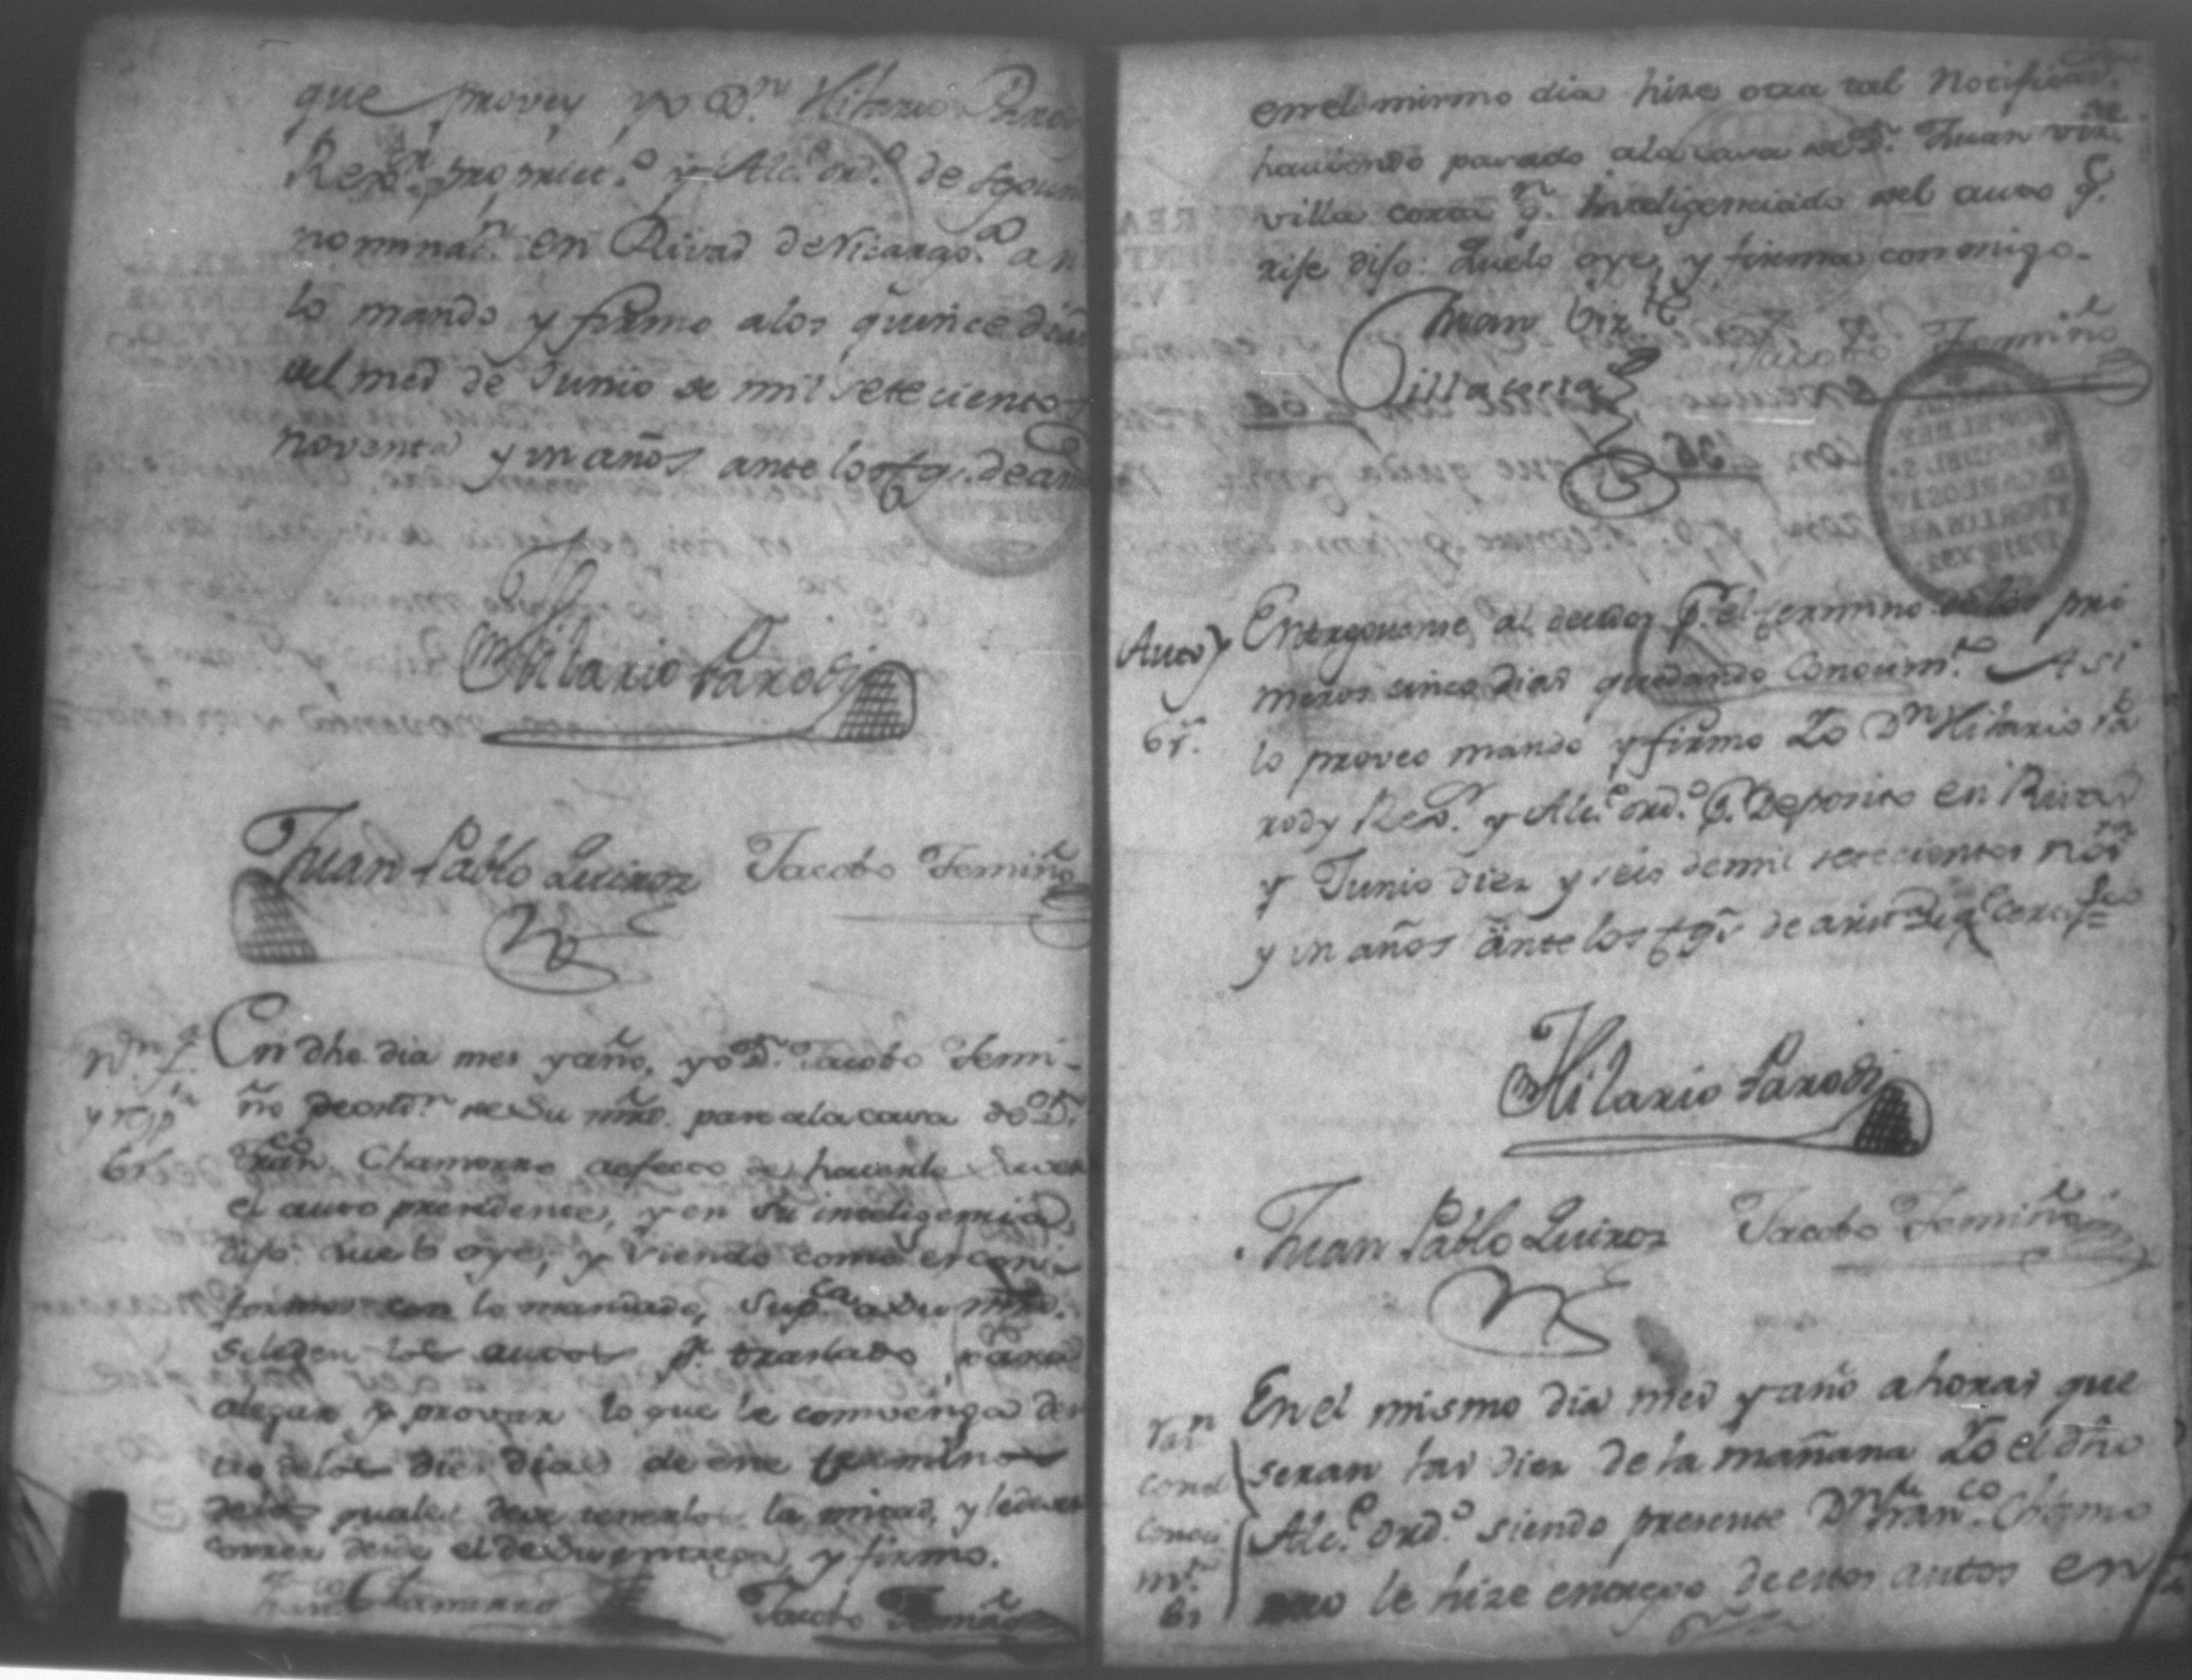 que provey yo Dn. Hilario Parod
Rexr. propriet.o y Alc.e ord.o de segun
nominacn. en Rivas de Nicarag.a a
lo mando y firmo alos quince dias
del mes de Junio de mil setecientos
noventa y un años ante los tgs. de
Hilario Parodi
Juan Pablo Quiros Jacobo Femiño
Nn.
y resp.ta
6rs
En dho dia mes y año, yo Dn. Jacobo Femi-
ño de ordn. de Su mrd. pase ala casa de Dn.
Fran.co Chamorro aefecto de hacerle saver
el auto presedente, y en su inteligencia,
dijo: que lo oye, y viendo como es con
formes con lo mandado, sup.ca a Su mrd.
se le den los autos pr. traslado para
alegar y provar lo que le convenga den
tro delos dies dias de este termino
delos quales deve tenerlos la mitad, y
correr desde el de Su entrega, y firmo.
Fran.co Chamorro Jacobo Femiño
en el mismo dia hize otra tal Notific
haviendo pasado ala casa de Dn. Juan Viz.te
villa corta qn. Inteligenciado del auto q.
dijo: Quelo oye, y firma conmigo.
Juan Viz.te
Villacorta
Jacobo Femiño
Auto
6r.
Entreguense al deudor pr. el termino de los pri
meros cinco dias quedando Conosim.to Asi
lo proveo mando y firmo Yo Dn Hilario Pa
rody Rexr. y Alc.e ord.o pr. Deposito en Rivas
y Junio diez y seis de mil setecientos nov
y un años ante los tgs. de
Hilario Parodi
Juan Pablo Quiros Jacobo Femiño
con
Conosi
m.to
6r
En el mismo dia mes y año a horas que
seran las diez de la mañana Yo el dho
Alc.e ord.o siendo presente Dn Fran.co Chamo
rro le hize entrego de estos autos en